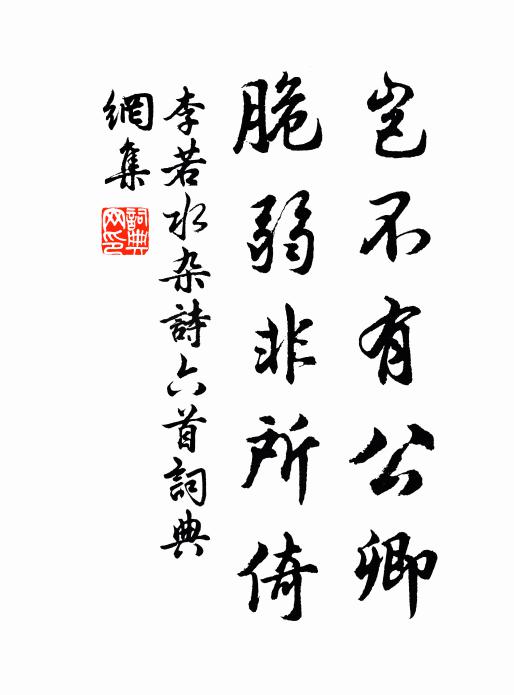 岂不有公卿
脆弱非所倚
李若水杂詩六首詞典
網集
詞典
网印